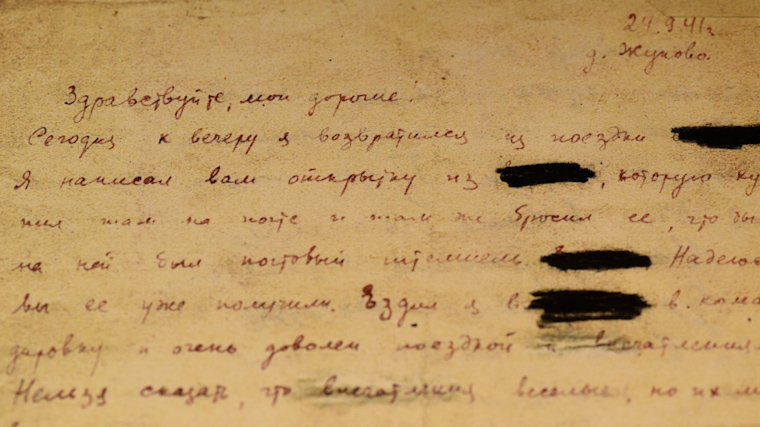 24.9.41г.
д. Жуково.
Здравствуйте, мои дорогие.
Сегодня к вечеру я возвратился из поездки
Я написал вам открытку из , которую ку
пил там на почте и там же бросил ее, что бы
на ней был почтовый штемпель. Надеюс
вы ее уже получили. Ездил я в в кома
дировку и очень доволен поездкой и впечатления
Нельзя сказать, что впечатления веселые, но их м